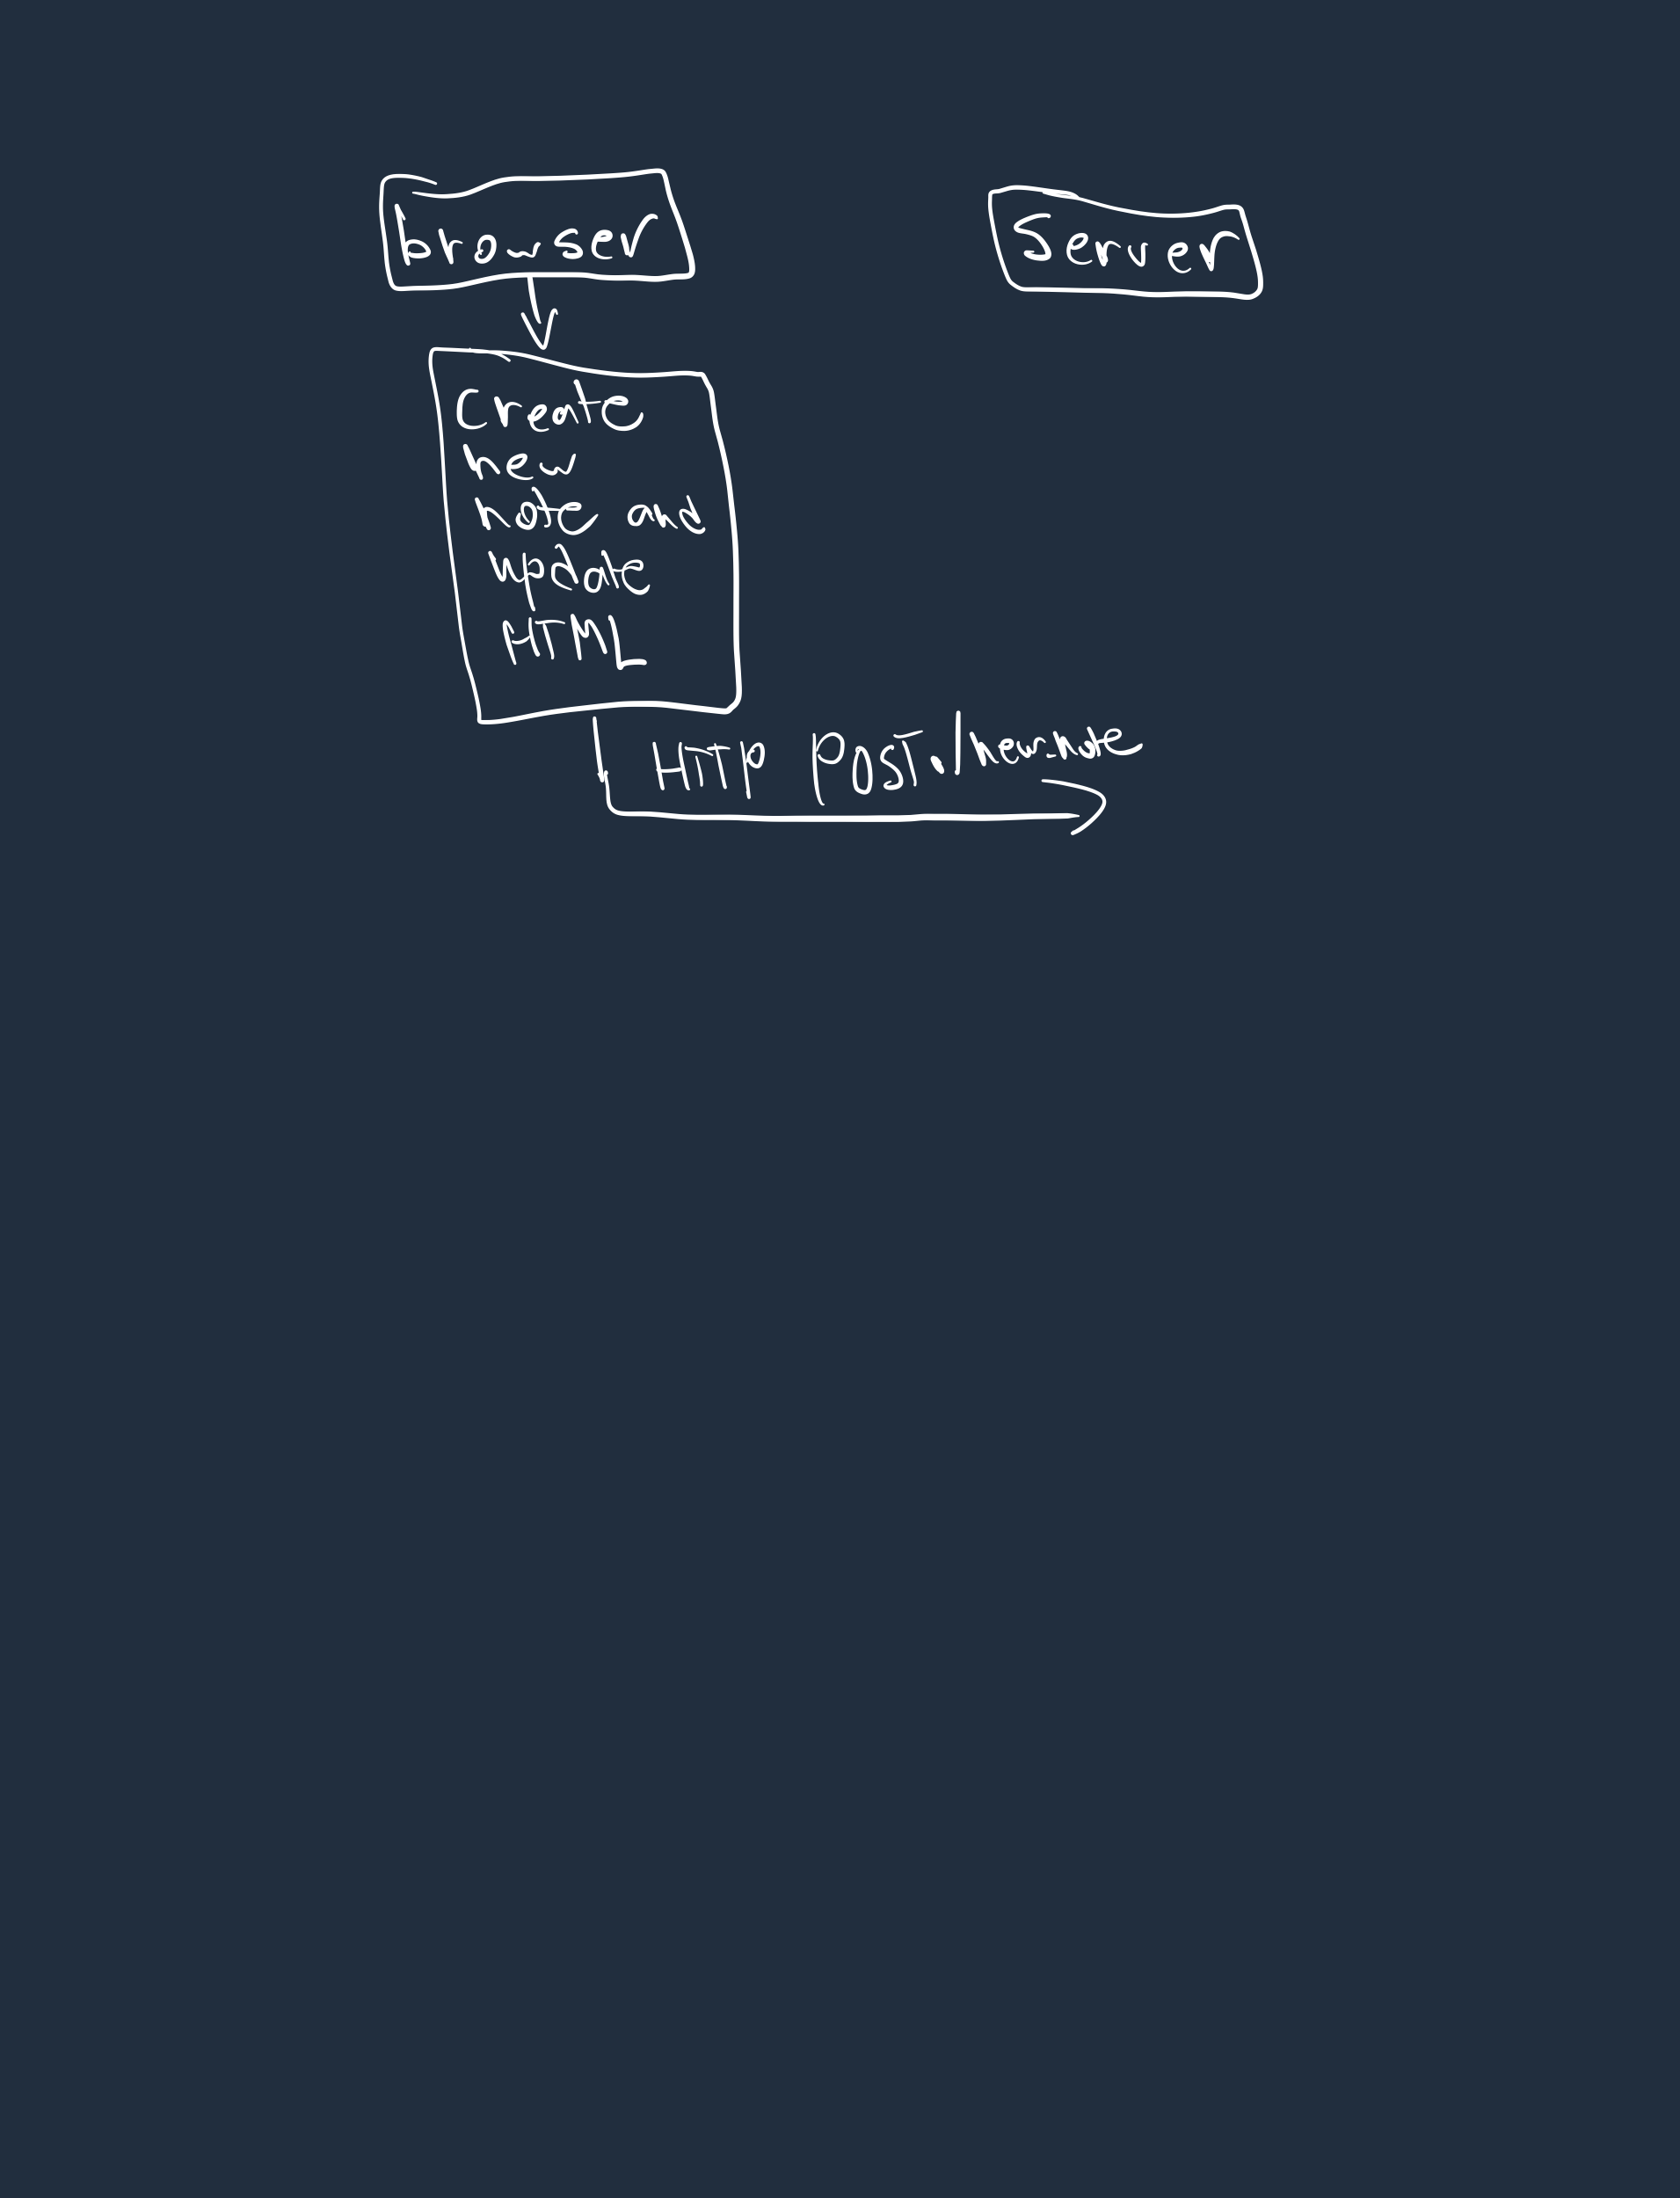 browser
Server
Create
new
note and
update
HTML
HTTP POST . /new_note